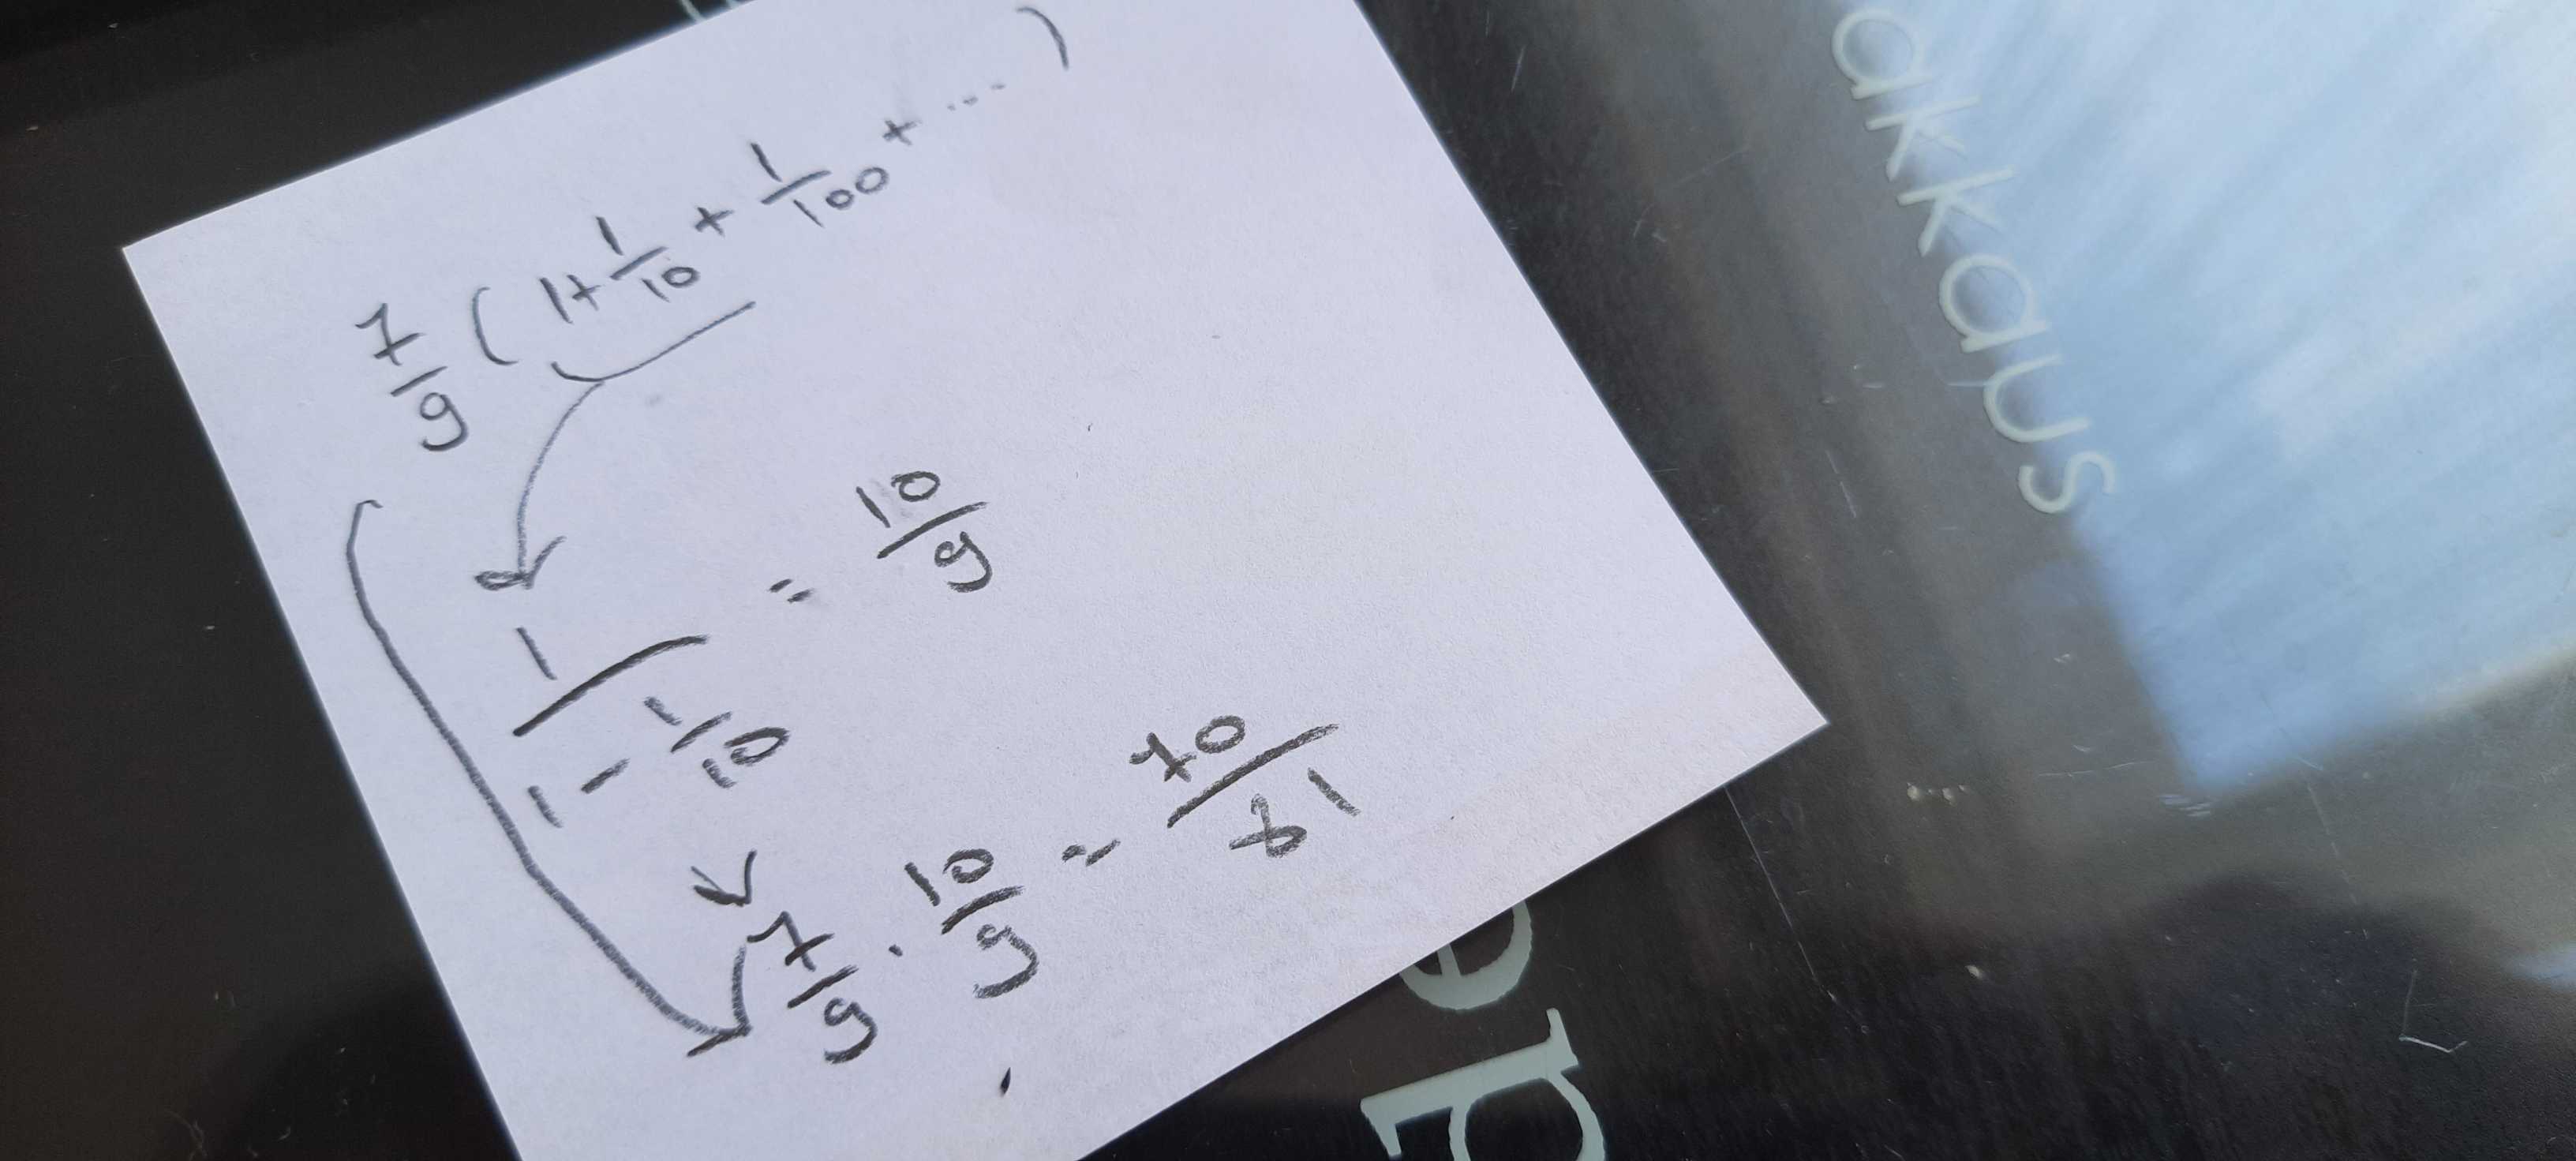 7/9 ( 1 + 1/10 + 1/100 + ... )
1/(1 - 1/10) = 10/9
7/9 · 10/9 = 70/81
akkaus